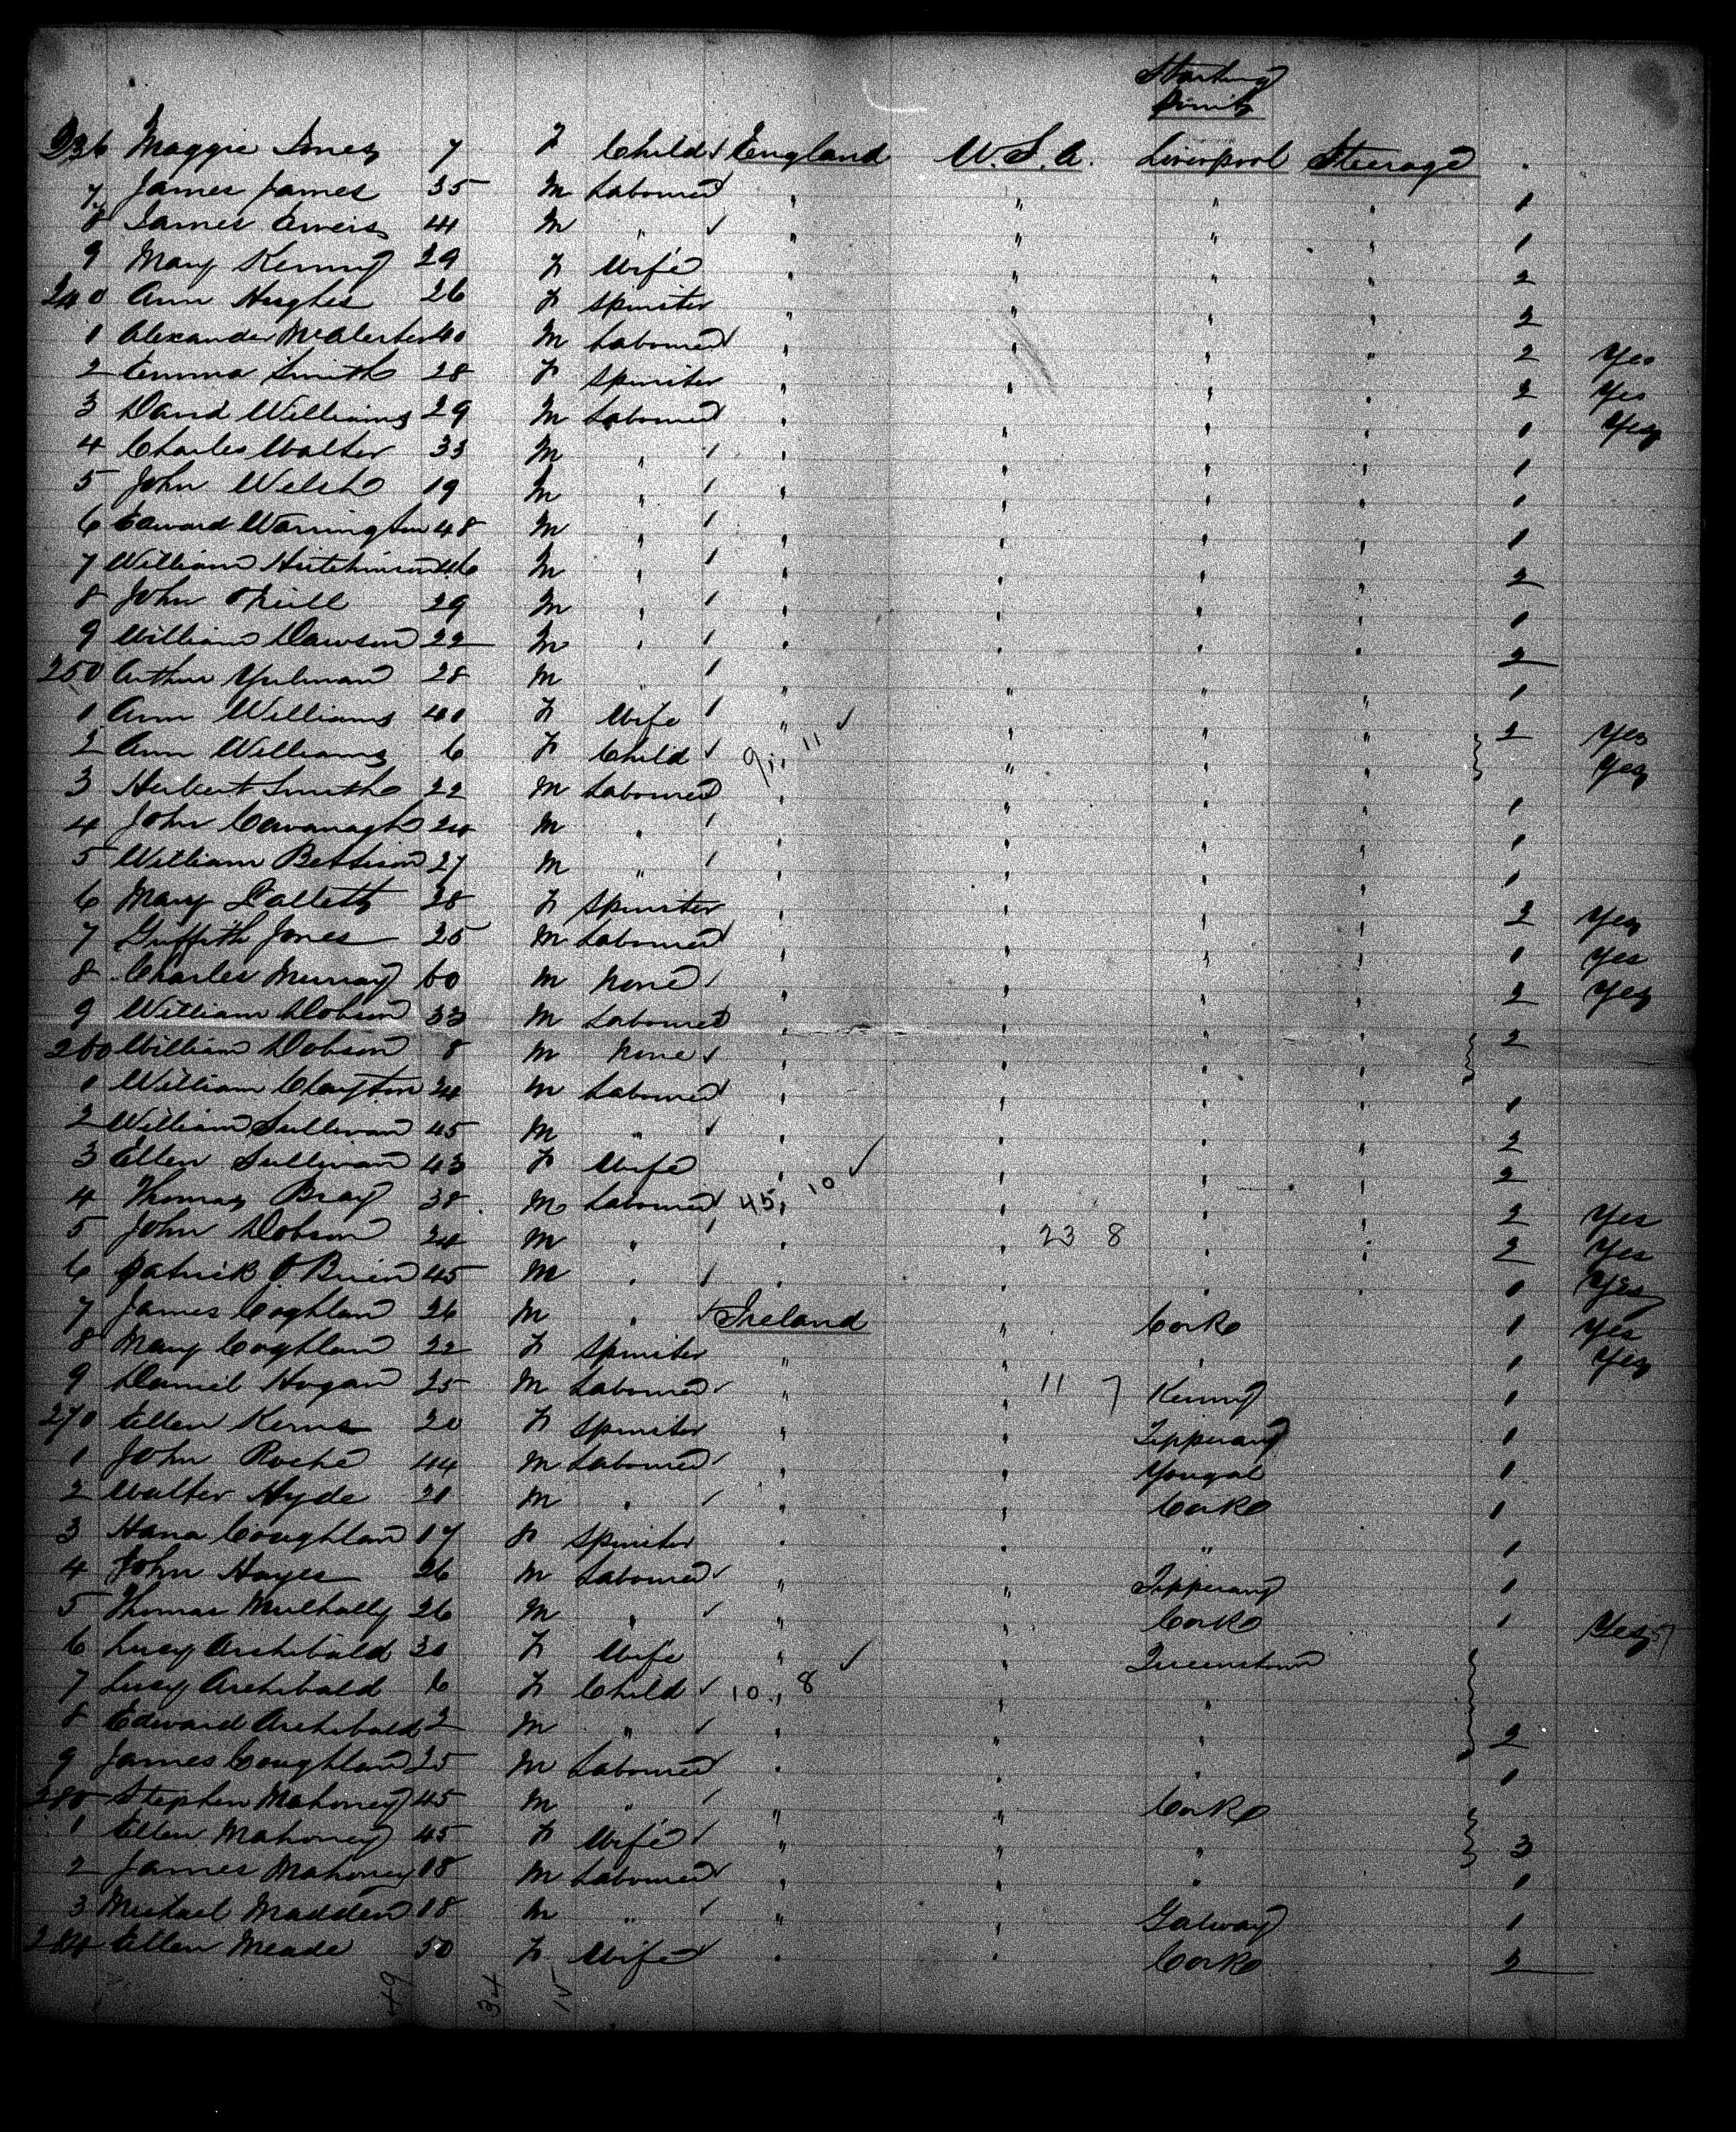 Starting
Point
236 Maggie Jones 7 F Child England U.S.A. Liverpool Steerage
7 James James 35 M Labourer " " " " 1
8 James 44 M " " " " " 1
9 Mary Kenny 29 F Wife " " " " 2
240 Ann Hughes 26 F Spinster " " " " 2
1 Alexander McAlester 40 M Labourer " " " " 2 Yes
2 Emma Smith 28 F Spinster " " " " 2 Yes
3 David Williams 29 M Labourer " " " " 1 Yes
4 Charles Walter 33 M " " " " " 1
5 John Welsh 19 M " " " " " 1
6 Edward Warrington 48 M " " " " " 1
7 William Hutchinson 46 M " " " " " 2
8 John ONeill 29 M " " " " " 1
9 William Dawson 22 M " " " " " 2
250 Arthur 28 M " " " " " 1
1 Ann Williams 40 F Wife " " " " 2 Yes
2 Ann Williams 6 F Child 9 11 " " " " Yes
3 Herbert Smith 22 M Labourer " " " " 1
4 John Cavanagh 24 M " " " " " 1
5 William Bettison 27 M " " " " " 1
6 Mary 28 F Spinster " " " " 2 Yes
7 Griffith Jones 25 M Labourer " " " " 1 Yes
8 Charles Murray 60 M None " " " " 2 Yes
9 William Dobson 33 M Labourer " " " " 2
260 William Dobson 8 M None " " " "
1 William Clayton 24 M Labourer " " " " 1
2 William Sullivan 45 M " " " " " 2
3 Ellen Sullivan 43 F Wife " " " " 2
4 Thomas Bray 38 M Labourer 45 10 " " " " 2 Yes
5 John Dobson 24 M " " " 23 8 " " 2 Yes
6 Patrick O'Brien 45 M " " " " " 1 Yes
7 James Coghlan 26 M " Ireland " Cork 1 Yes
8 Mary Coghlan 22 F Spinster " " " 1 Yes
9 Daniel Hogan 25 M Labourer " " 11 7 Kenny 1
270 Ellen Kerns 20 F Spinster " " Tipperary 1
1 John Roche 44 M Labourer " " Yougal 1
2 Walter Hyde 21 M " " " Cork 1
3 Hana Coughlan 17 F Spinster " " " 1
4 John Hayes 26 M Labourer " " Tipperary 1
5 Thomas Mulhally 26 M " " " Cork 1 Yes
6 Lucy Archibald 30 F Wife " " Queenstown
7 Lucy Archibald 6 F Child 10 8 " " "
8 Edward Archibald 2 M " " " " 2
9 James Coughlan 25 M Labourer " " " 1
280 Stephen Mahoney 45 M " " " Cork
1 Ellen Mahoney 45 F Wife " " " 3
2 James Mahoney 18 M Labourer " " " 1
3 Michael Madden 18 M " " " Galway 1
284 Ellen Meade 50 F Wife " " Cork 2
49 34 15